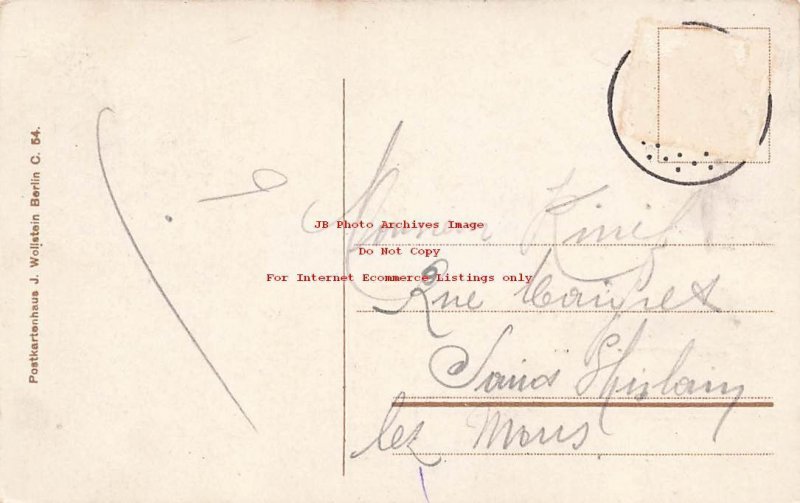 Postkartenhaus J. Wollstein Berlin C. 54.
JB Photo Archives Image
Do Not Copy
For Internet Ecommerce Listings only
Monsieur
Rue
Saint Ghislain
lez Mons